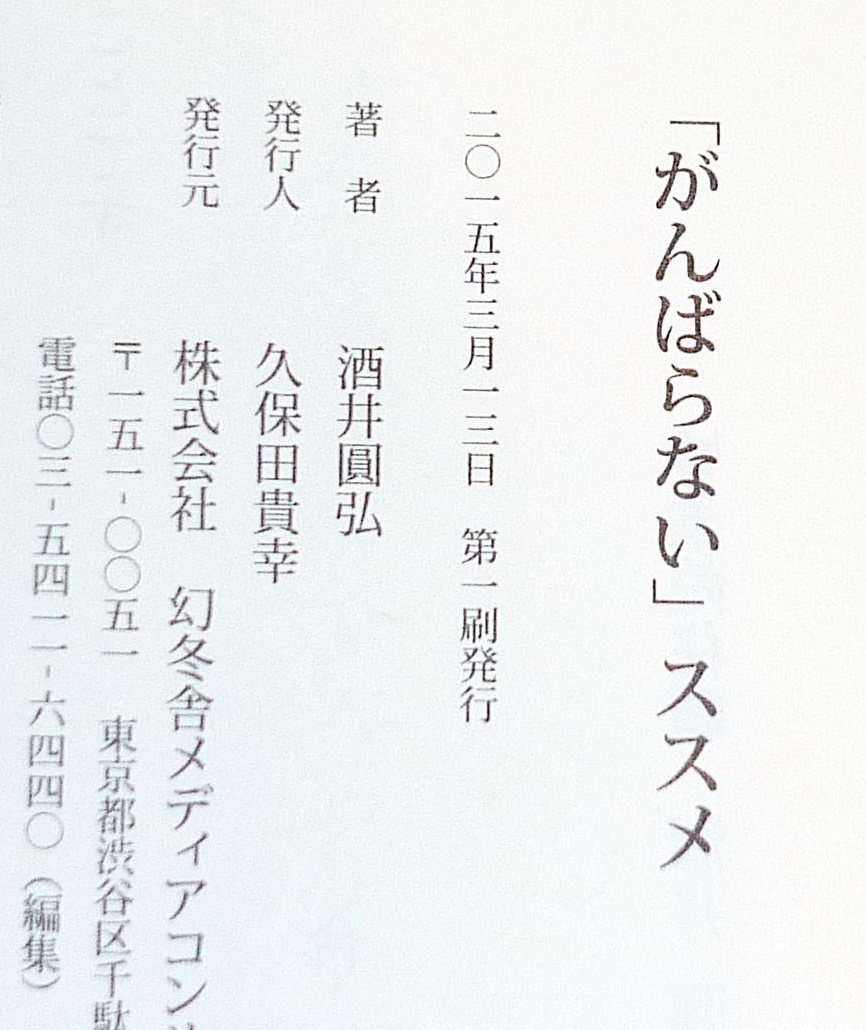 「がんばらない」ススメ
二〇一五年三月一三日 第一刷発行
著 者 酒井圓弘
発行人 久保田貴幸
発行元 株式会社 幻冬舎メディアコン
〒一五一-〇〇五一 東京都渋谷区千駄
電話〇三-五四一一-六四四〇(編集)